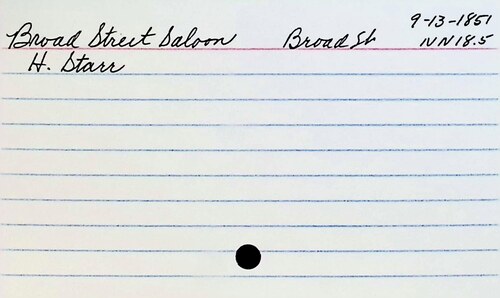 9-13-1851
Broad Street Saloon Broad St NN18.5
H. Starr